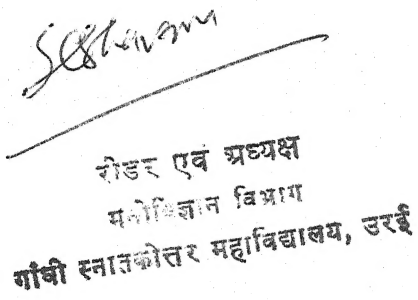 रीडर एवं अध्यक्ष
मनोविज्ञान विभाग
गाँधी स्नातकोत्तर महाविद्यालय, उरई